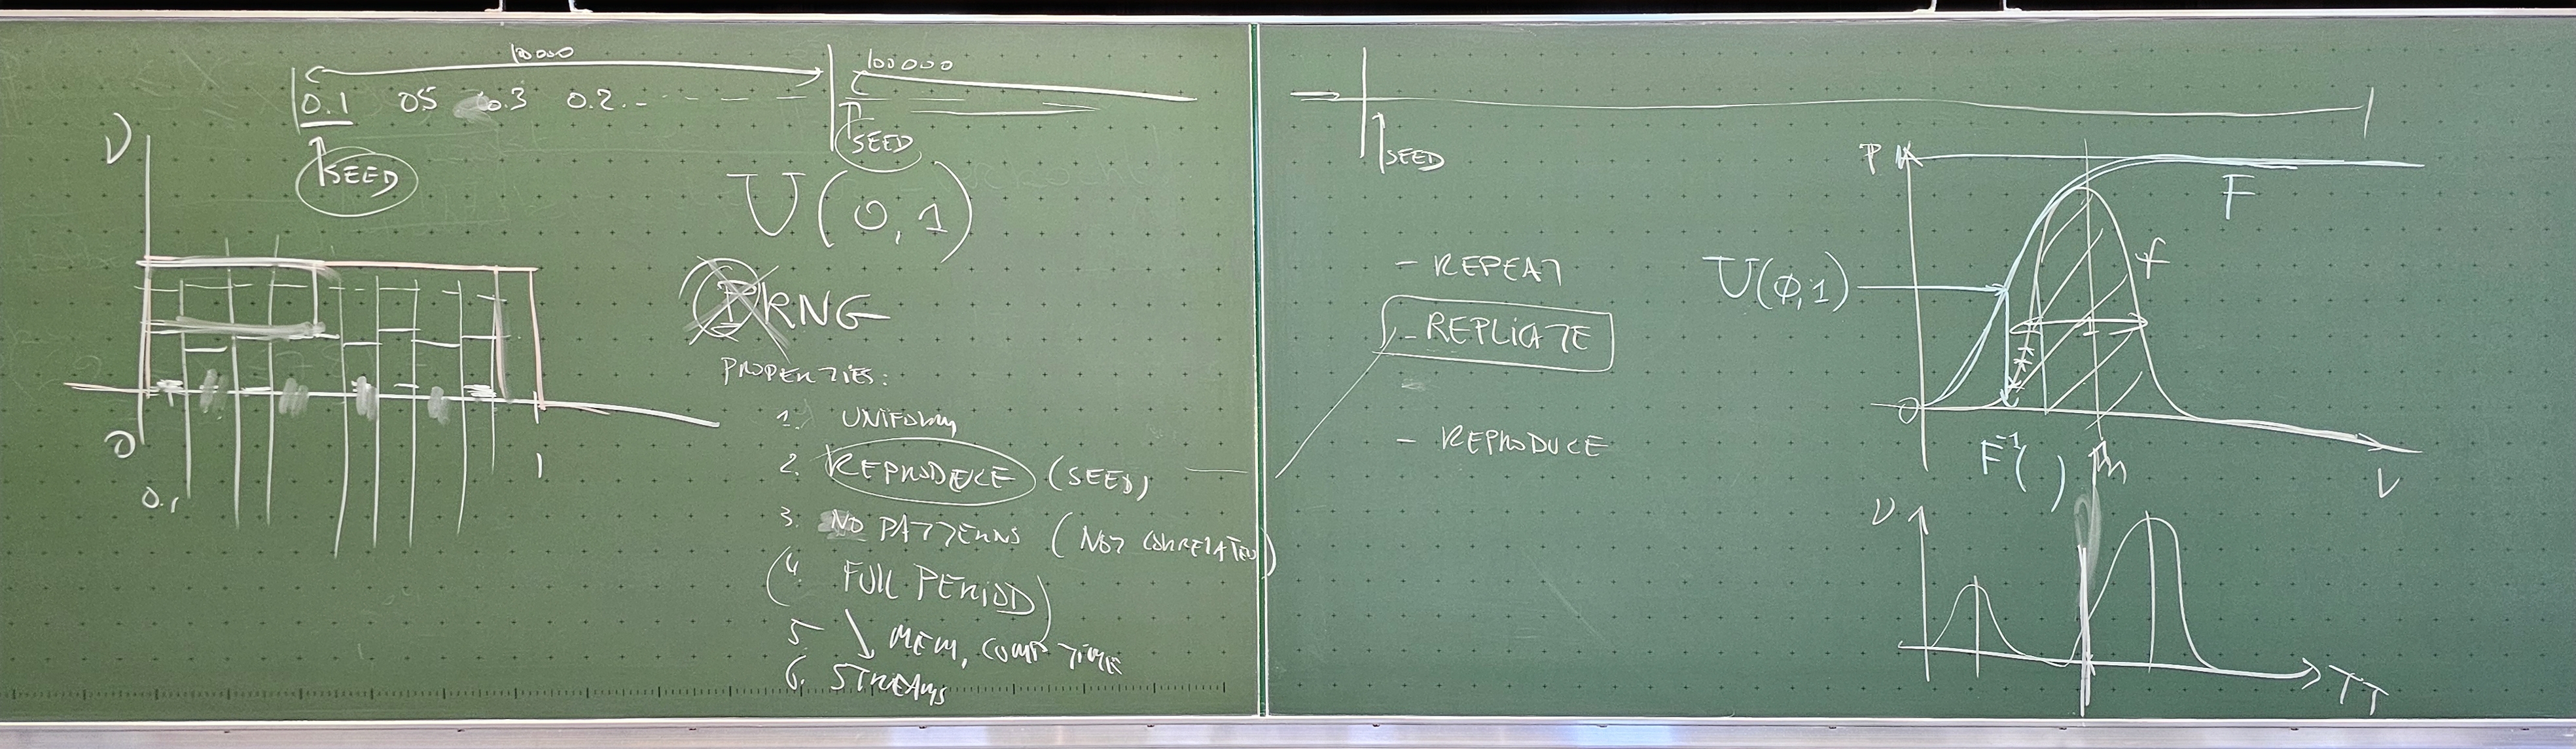 100000
0.1 05 0.3 0.2..
SEED
100000
SEED
U(0,1)
PRNG
PROPERTIES:
1. UNIFORM
2. REPRODUCE (SEED)
3. NO PATTERNS (NOT CORRELATED)
(4. FULL PERIOD)
5. ↘ MEM, COMP TIME
6. STREAMS
ν
0
0.1
1
SEED
- REPEAT
- REPLICATE
- REPRODUCE
U(0,1)
P
F
f
0
F⁻¹( )
m
V
ν
TT